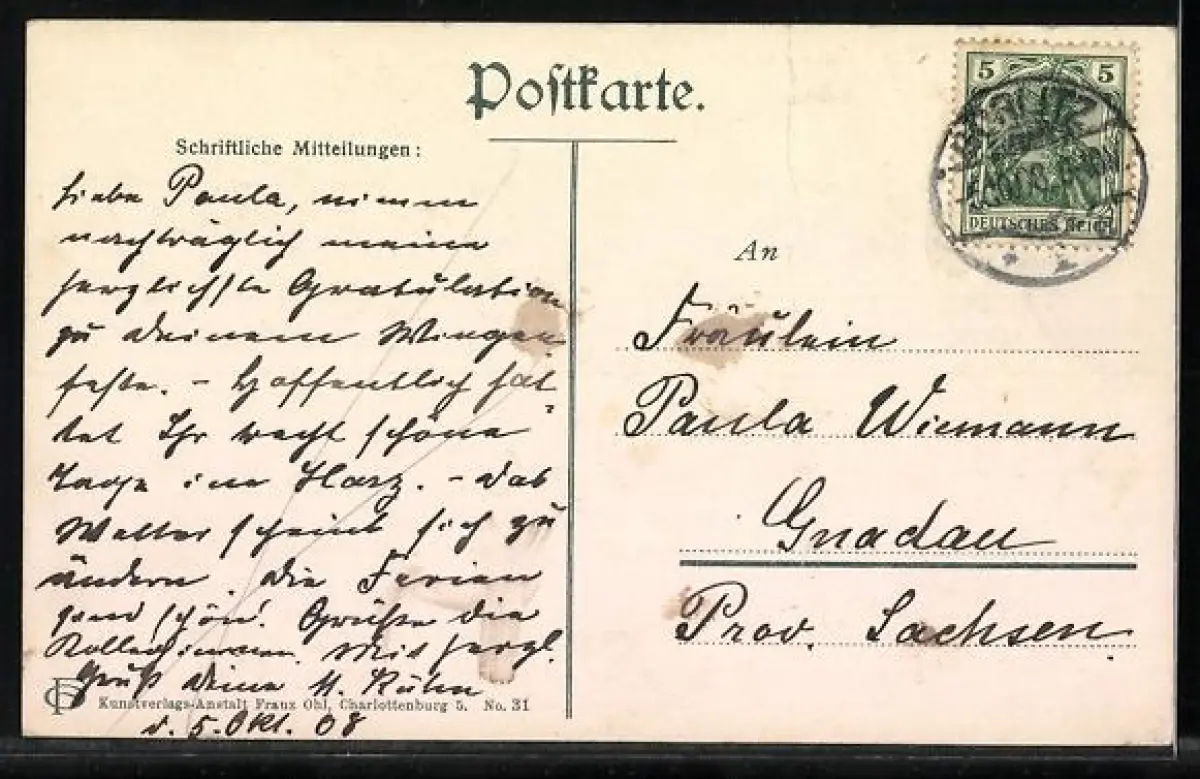 Postkarte.
Schriftliche Mitteilungen:
Liebe Paula, nimm
nachträglich meine
herzlichste Gratulation
zu Deinem Wiegen
feste. - Hoffentlich hat
tet Ihr recht schöne
Tage im Harz. - Das
Wetter scheint sich zu
ändern. Die Ferien
sind schön! Grüße die
Kolleginnen. Mit herzl.
Gruß Deine M. Kühn
d. 5. Okt. 08
Kunstverlags-Anstalt Franz Ohl, Charlottenburg 5. No. 31
5 5
DEUTSCHES REICH
An
Fräulein
Paula Wiemann
Gnadau
Prov. Sachsen.